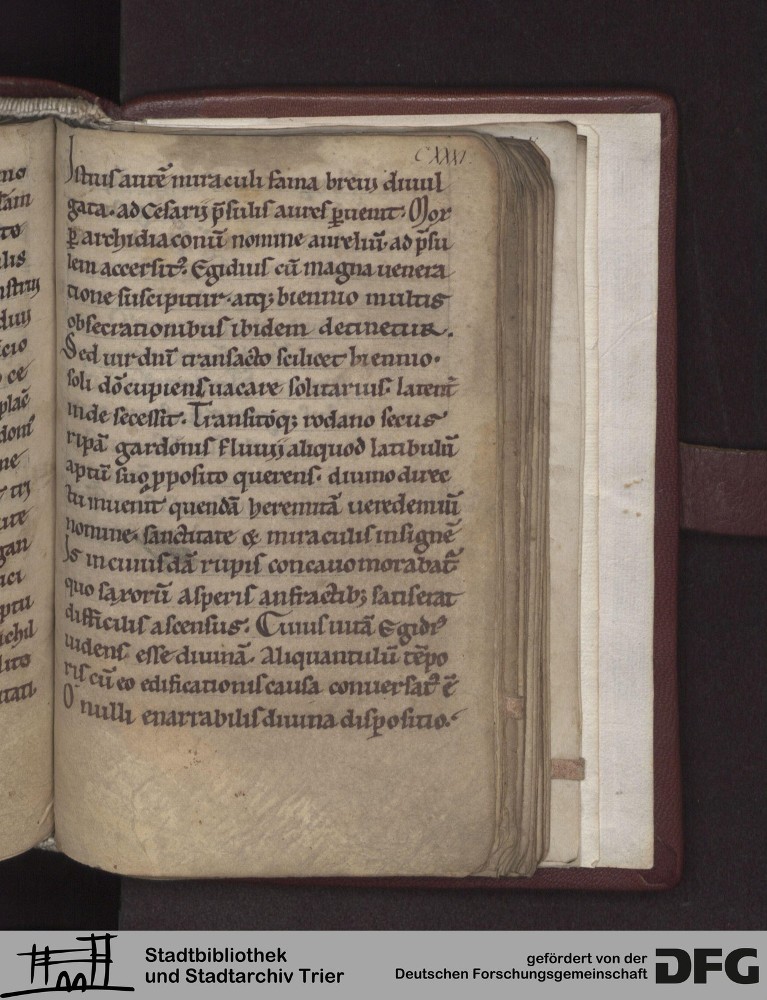 no
to
lis
cio
ce
plac̄
ne
ptu
lito
CXXXI
Istius autē miraculi fama breuı diuul
gata. ad Cesarij p̄sulis aures ꝑuenit. Mox
ꝑ archidiaconū nomine aureliū. ad p̄su
lem accersitꝰ. Egidius cū magna uenera
tione suscipitur. atq; biennio multis
obsecrationibus ibidem detinetur.
Sed uir dn̄i transacto scilicet biennio.
soli dō cupiens uacare solitarius. latent̄
inde secessit. Transitoq; rodano secus
ripā gardonis fluuij aliquod latibulū
aptū suo ꝓposito querens. diuino duce
tu inuenit quendā heremitā ueredemiū
nomine. sanctitate & miraculis insignē
Is in cuiusdā rupis concauo morabat̄
quo saxorū asperis anfractib; satis erat
difficilis ascensus. Cuius uitā Egidiꝰ
uidens esse diuinā. Aliquantulū tēpo
ris cū eo edificationis causa conuersatꝰ ē
O nulli enarrabilis diuina dispositio.
Stadtbibliothek
und Stadtarchiv Trier
gefördert von der
Deutschen Forschungsgemeinschaft
DFG